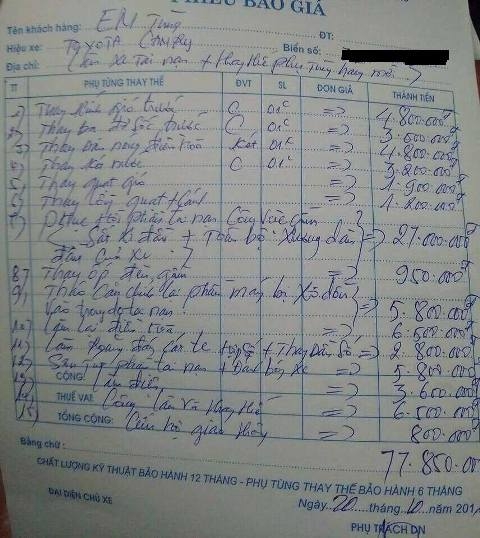 PHIẾU BÁO GIÁ
Tên khách hàng: EM Tùng ĐT:
Hiệu xe: TOYOTA CAMRY Biển số:
Địa chỉ: xe Tai nan + thay thế phụ Tùng hang mới
TT PHỤ TÙNG THAY THẾ ĐVT SL ĐƠN GIÁ THÀNH TIỀN
1) Thay Kính gió trước C 01c => 4.800.000đ
2) Thay ba đờ sốc trước C 01c => 3.600.000đ
3) Thay giàn nóng điều hòa két 01c => 4.800.000đ
4) Thay két nước C 01c => 3.200.000đ
5) Thay quạt gió => 1.900.000đ
6) Thay lồng quạt => 1.200.000đ
7) Phục hồi phần tai nan Công vac
Sắt xi đầu + Toàn bộ Xương đầu => 27.000.000đ
đầu Của Xe
8) Thay ốp đèn gầm 950.000đ
9) Tháo Căn chỉnh lại phần máy bị Xô dồn => 5.800.000đ
Vào trong do tai nan
10) Làm lại điều hòa => 6.500.000đ
11) Làm + Thay Dầu Số => 2.800.000đ
12) Sơn phần tai nan + xe => 5.800.000đ
CỘNG:
13) Làm điện => 3.600.000đ
THUẾ VAT
14) Công làm và thay thế => 6.500.000đ
TỔNG CỘNG:
15) Cẩu giao thông => 800.000đ
Bằng chữ: 77.850.000
CHẤT LƯỢNG KỸ THUẬT BẢO HÀNH 12 THÁNG - PHỤ TÙNG THAY THẾ BẢO HÀNH 6 THÁNG
Ngày 20 tháng 10 năm 201
ĐẠI DIỆN CHỦ XE PHỤ TRÁCH DN